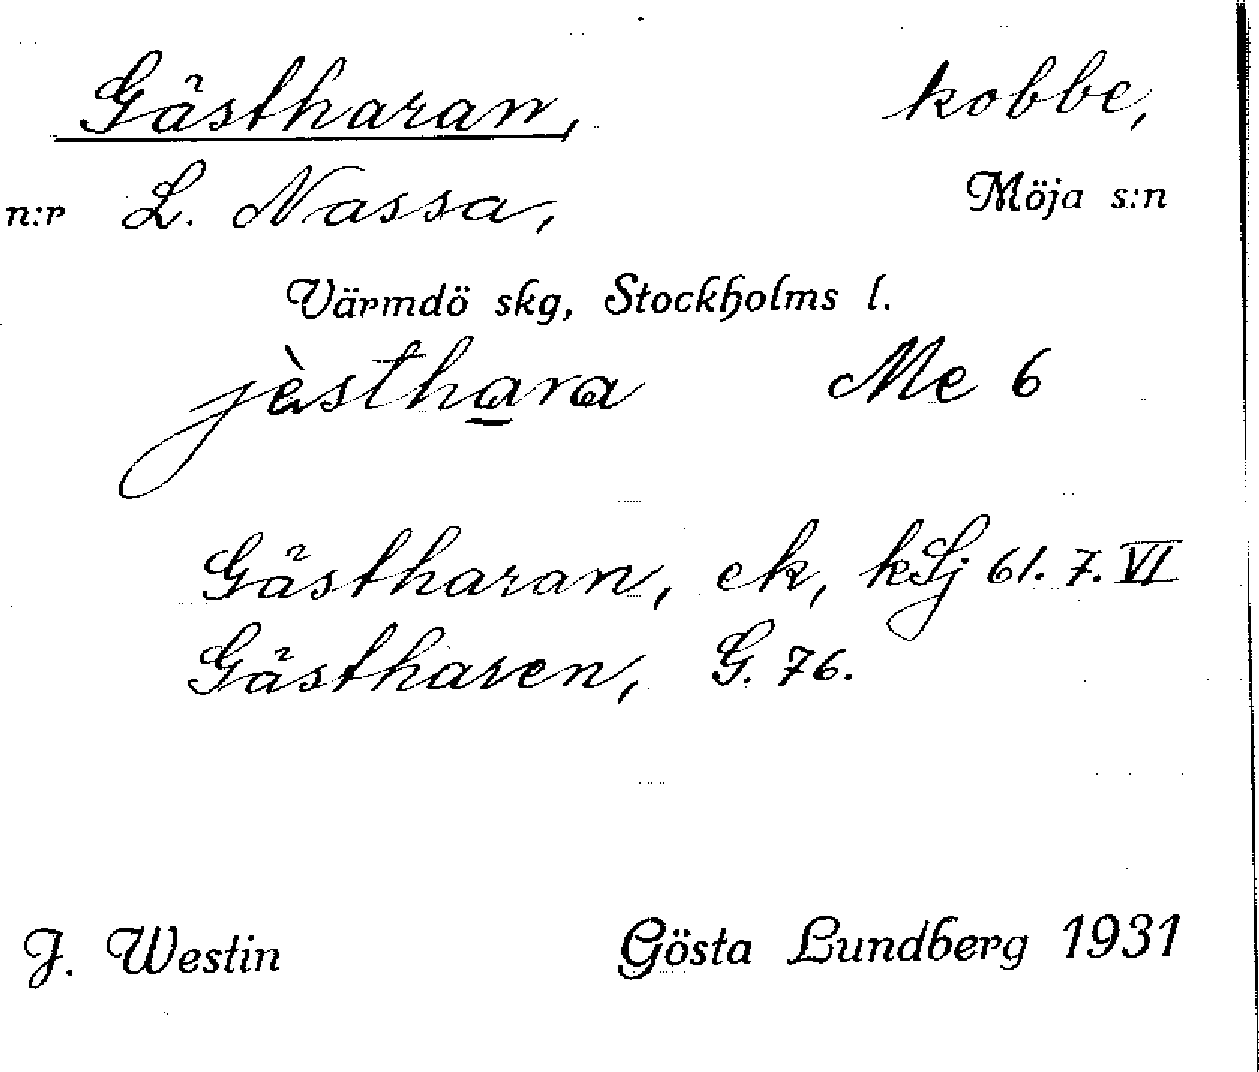 Gästharan, kobbe,
n:r L. Nassa, Möja s:n
Värmdö skg, Stockholms l.
jèsthara Me 6
Gästharan, ek, kSj 61. 7. VI
Gästharen, G. 76.
J. Westin Gösta Lundberg 1931